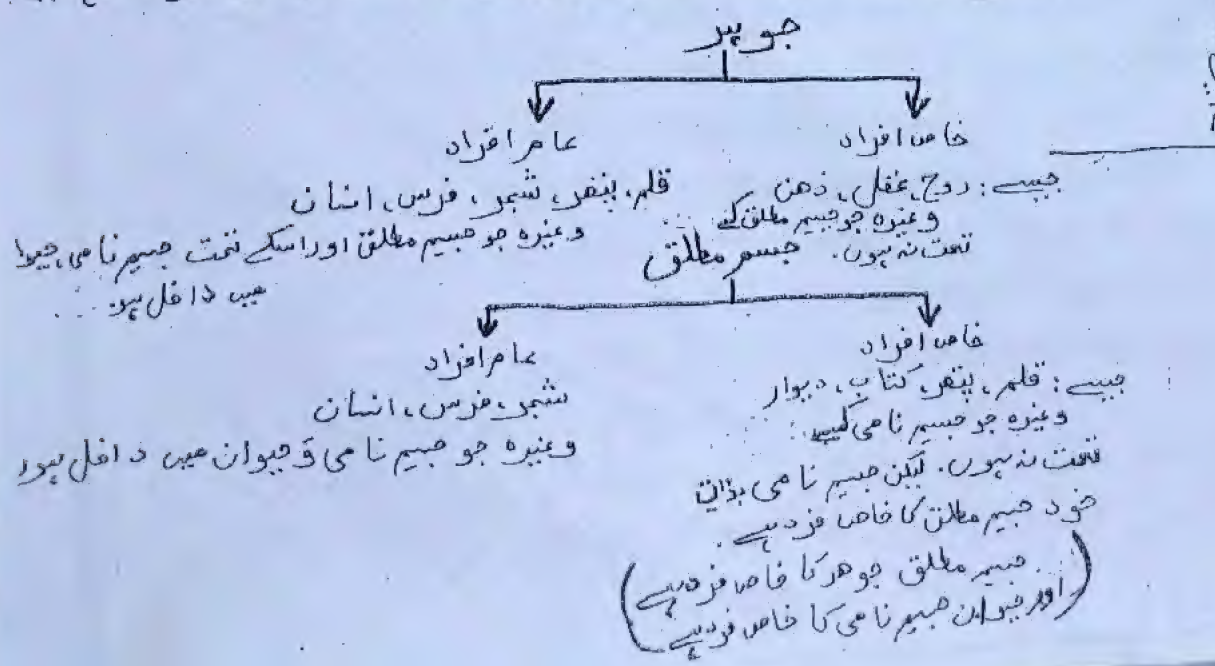 جوہر
خاص افراد
جیسے: روح، عقل، ذھن
وغیرہ جو جسیم مطلق کے
تحت نہ ہوں۔
عام افراد
قلم، پتھر، شجر، فرس، انسان
وغیرہ جو جسیم مطلق اور اسکے تحت جسیم نامی، حیوا
میں داخل ہو۔
جسم مطلق
خاص افراد
جیسے: قلم، پتھر، کتاب، دیوار
وغیرہ جو جسیم نامی کے
تحت نہ ہوں۔ لیکن جسیم نامی بذات
خود جسیم مطلق کا خاص فرد ہے۔
(جسیم مطلق جوھر کا خاص فرد ہے
اور حیوان جسیم نامی کا خاص فرد ہے)
عام افراد
شجر، فرس، انسان
وغیرہ جو جسیم نامی و حیوان میں داخل ہوں